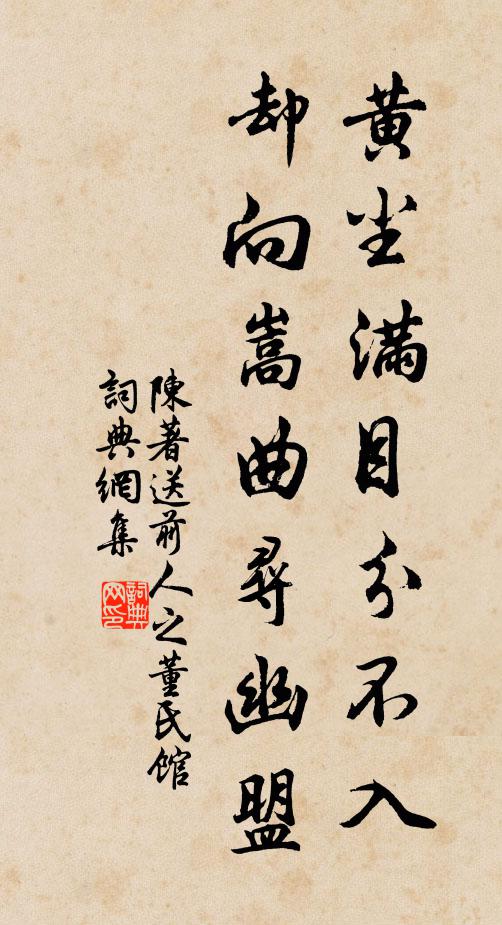 黄尘满目分不入
却向嵩曲寻幽盟
陳著送前人之董氏馆
詞典網集
詞典网印